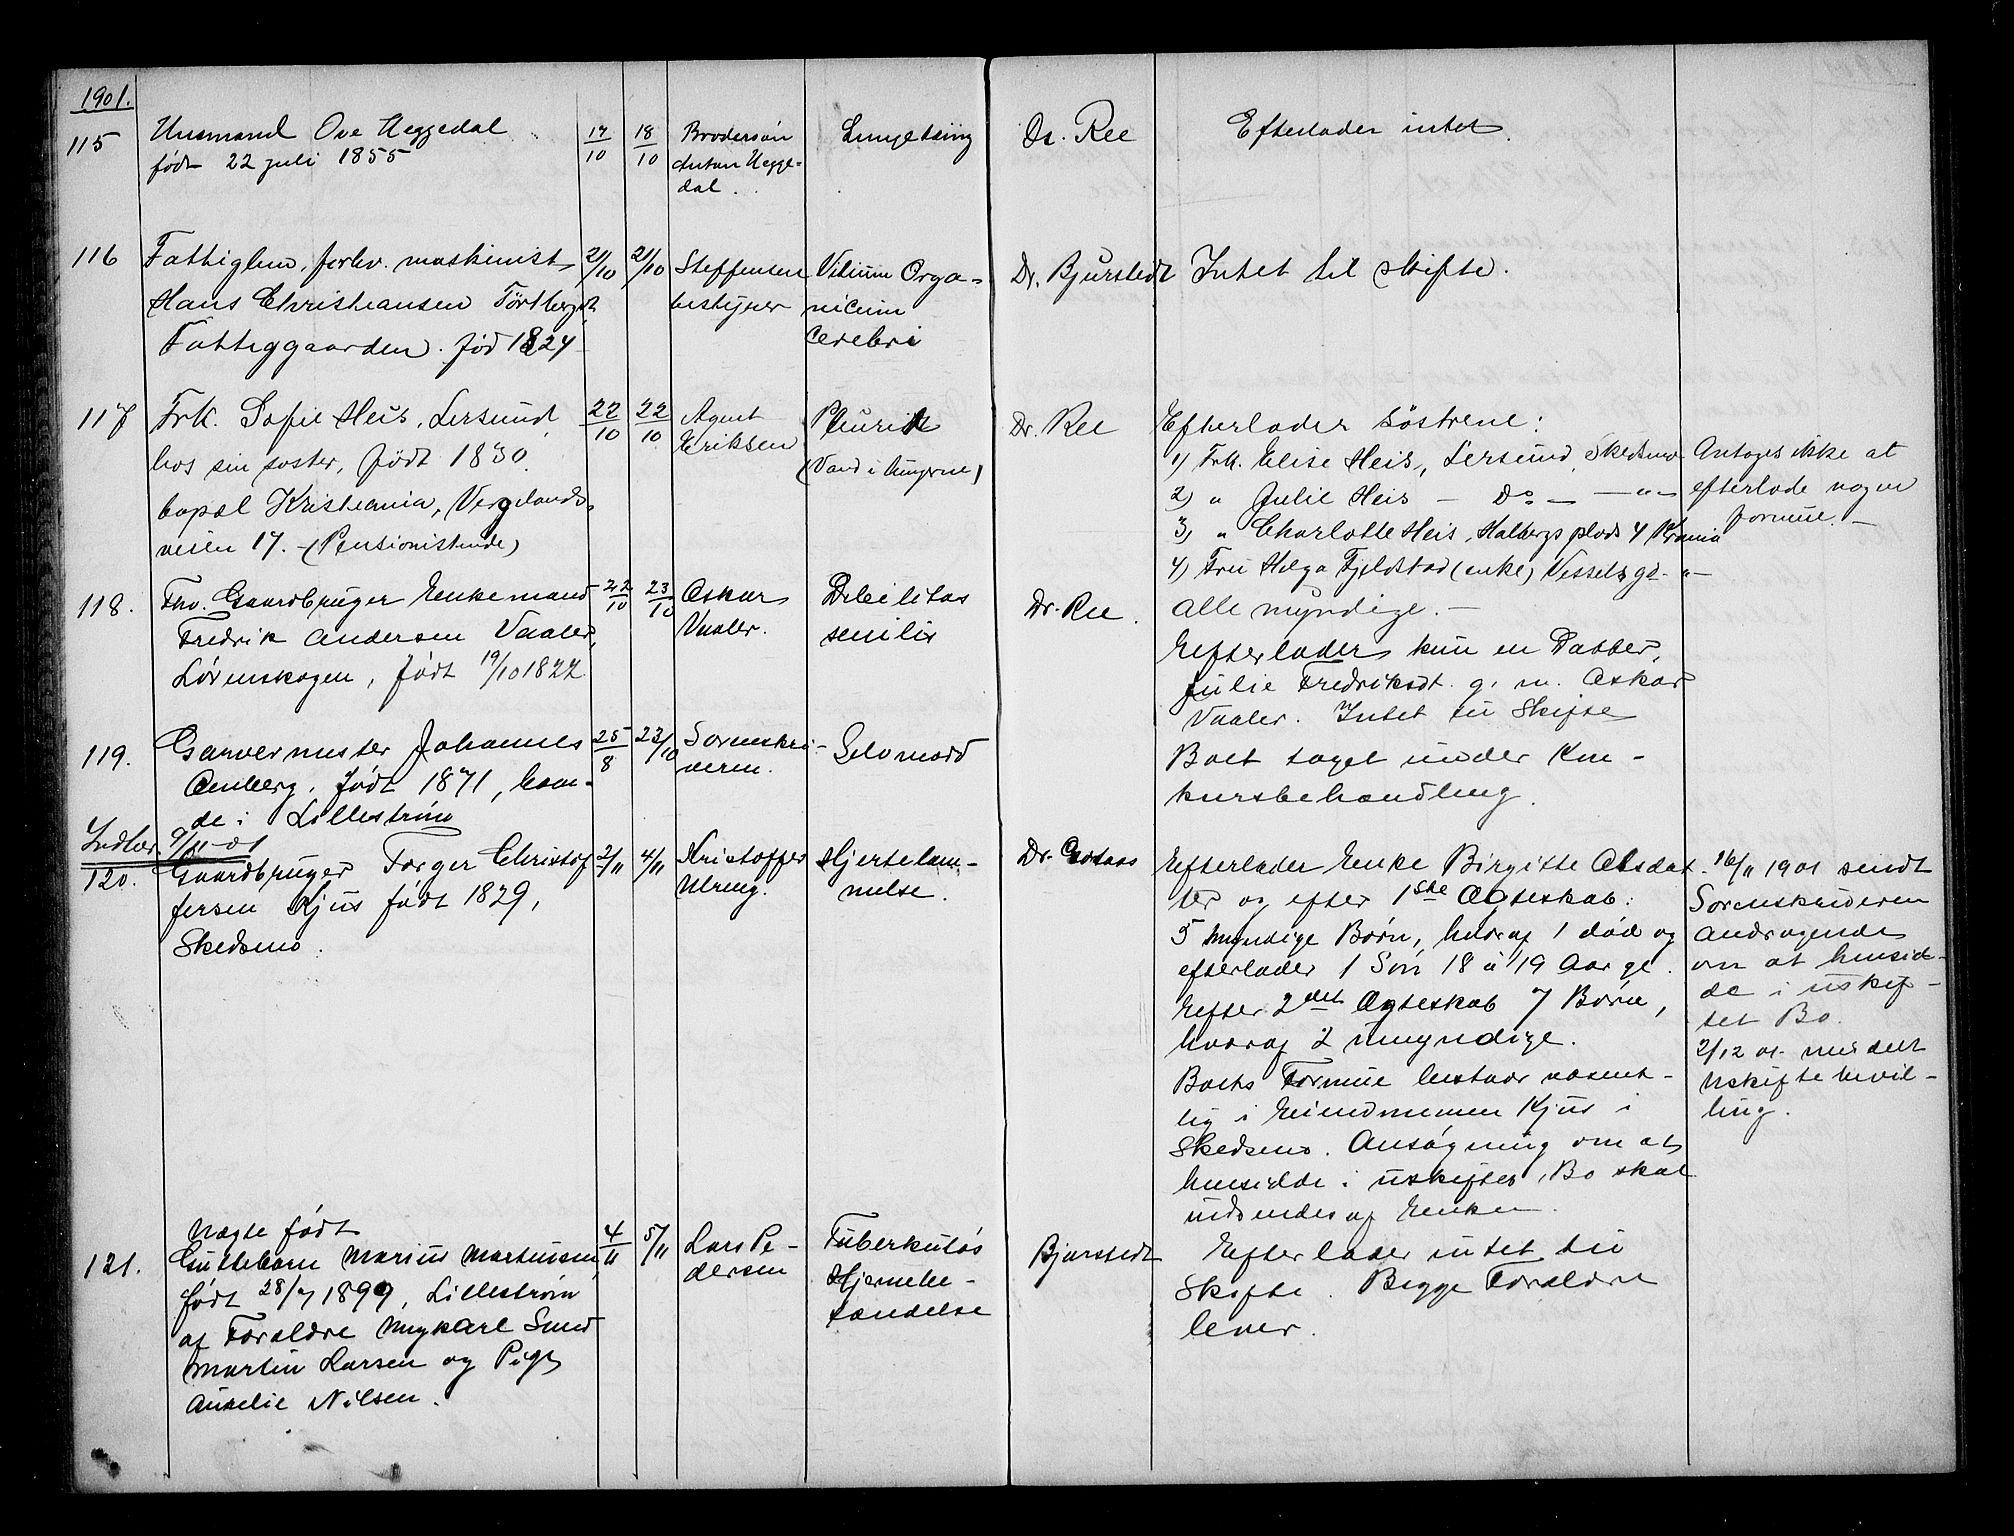 1901.
115
Husmand Ove Heggedal
født 22 juli 1855
17/10
18/10
Brodersøn
Anton Hegge-
dal.
Lungetæring
Dr. Ree
Efterlader intet.
116
Fattiglem, forhv. maskinist
Hans Christiansen
Fattiggaarden. fød 1824
21/10
21/10
Steffensen
bestyrer
Vitium Orga-
nicum
Cerebri
Dr. Bjurstedt
Intet til skifte.
117
Frk. Sofie Heis, Lersund
hos sin søster, født 1830.
bopæl Kristiania, Vergelands-
veien 17. - (Pensionistinde)
22/10
22/10
Agent
Eriksen
Pleurit
(Vand i lungerne)
Dr. Ree
Efterlader Søstrene:
1) Frk. Elise Heis, Lersund, Skedsmo
2) " Julie Heis - Do - - " -
3) " Charlotte Heis, Holbergs plads 4 Krania
4) Fru Helga Fjeldstad (enke) Vesselsgd. - " -
Alle myndige. -
Antages ikke at
efterlade nogen
formue. -
118.
Fhv. Gaardbruger Enkemand
Fredrik Andersen Vaaler,
Lørenskogen, født 19/10 1822
22/10
23/10
Oskar
Vaaler.
Debilitas
senilis
Dr. Ree.
Efterlader kun en Datter,
Julie Fredriksdt. g. m. Oskar
Vaaler. Intet til Skifte
119.
Garvermester Johannes
Amberg, født 1871, boen-
de i Lillestrøm
25/8
23/10
Sorenskri-
veren.
Selvmord
Boet taget under Kon-
kursbehandling.
Indber. 9/11-01
120.
Gaardbruger Torger Christof
fersen Kjus født 1829,
Skedsmo.
2/11
4/11
Kristoffer
Ulreng.
Hjertelam-
melse.
Dr.
Efterlader Enke Birgitte Olsdat-
ter og efter 1ste Ægteskab:
5 myndige Børn, hvoraf 1 død og
efterlader 1 Søn 18 à 19 Aar gl.
Efter 2det Ægteskab 7 Børn,
hvoraf 2 umyndige.
Boets Formue bestaar væsent-
lig i Eiendommen Kjus i
Skedsmo. Ansøgning om at
hensidde i uskiftet Bo skal
indsendes af Enken.
16/11 1901 sendt
Sorenskriveren
andragende
om at hensid-
de i uskif-
tet Bo.
2/12 01. meddelt
Uskiftebevil-
ling.
121.
Ægte født
Guttebarn Marius Martinsen,
født 28/7 1899, Lillestrøm
af Forældre Murgkarl Smed
Martin Larsen og Pige
Aurelie Nilsen.
4/11
5/11
Lars Pe-
dersen
Tuberkuløs
Hjernebe-
tændelse
Bjurstedt
Efterlader intet til
Skifte. Begge Forældre
lever.